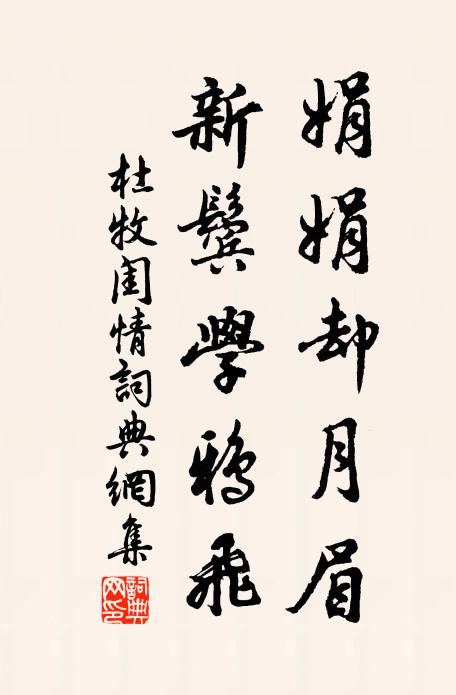 娟娟却月眉
新鬓學鴉飛
杜牧閨情詞典網集
詞典網印